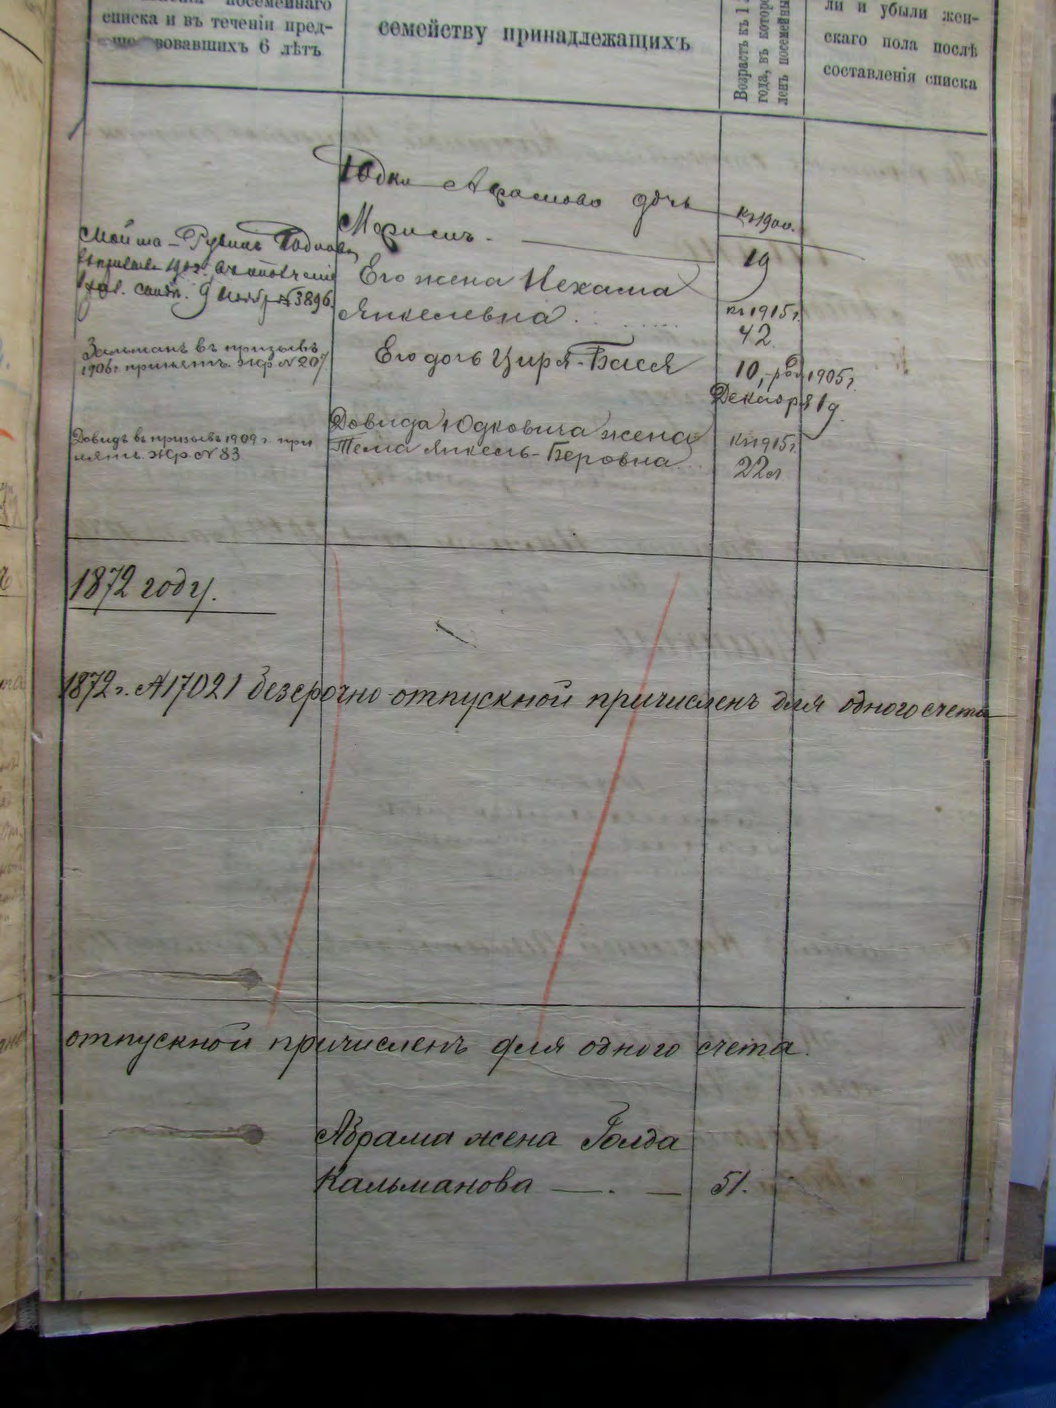 посемейнаго
списка и въ теченіи пред-
шествовавшихъ 6 лѣтъ
семейству принадлежащихъ
Возрастъ къ 1
года, въ котор
ленъ посемейны
ли и убыли жен-
скаго пола послѣ
составленія списка
Юдки дочь
къ 1900 г.
19
Мойша-Рувинъ
9 Ноября № 3896.
Его жена Нехама
Янкелевна
къ 1915 г.
42
Зальманъ въ призывъ
1906 г. принятъ. жр № 207
Его дочь Циря-Бася
10, род 1905 г.
Декабря 19.
Довидъ въ призывъ 1909 г. при
нятъ. жр № 83
Довида Юдковича жена
Тема Янкель-Беровна
къ 1915 г.
22 л
1872 году.
1872 г. № 17021 безсрочно-отпускной причисленъ для одного счета
отпускной причисленъ для одного счета.
Абрама жена Голда
Кальманова
51.